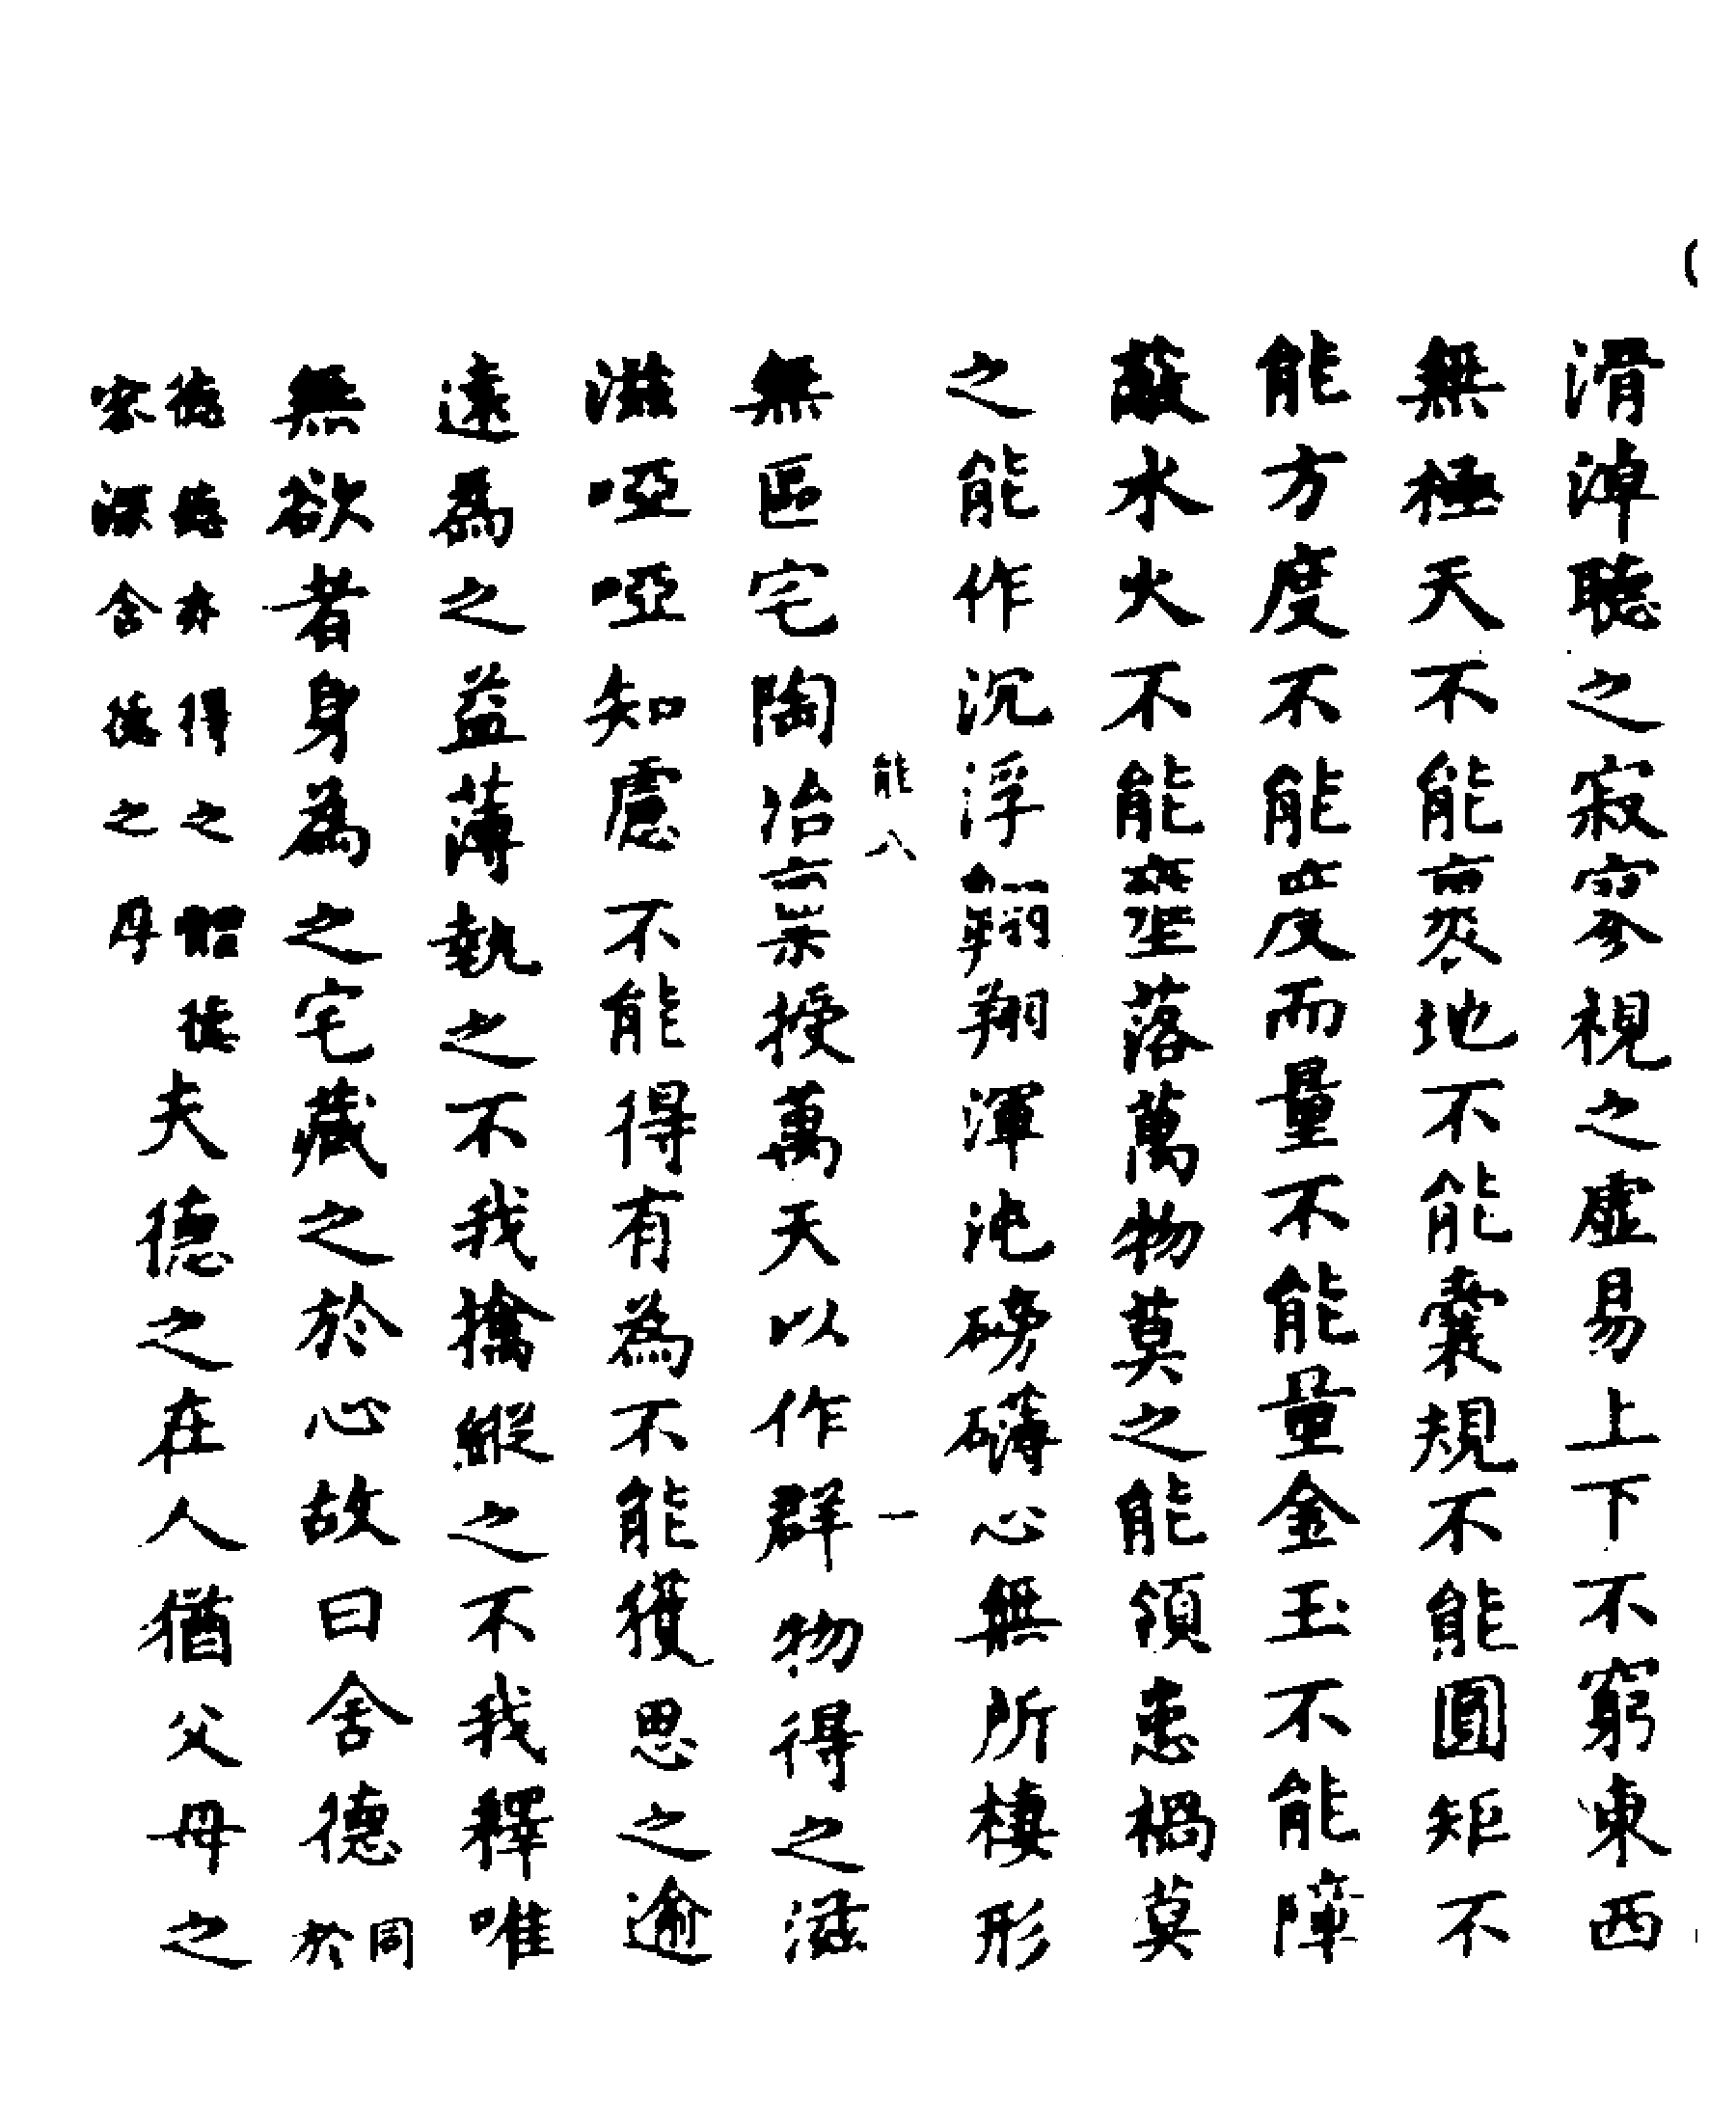 滑淖聽之寂寥視之虛易上下不窮東西
無極天不能裹地不能囊規不能圓矩不
能方度不能度而量不能量金玉不能障
蔽水火不能壅落萬物莫之能領患禍莫
之能作沉浮翱翔渾沌磅礴心無所棲形
無區宅陶冶稟授萬天以作群物得之滋
能八 一
滋啞啞知慮不能得有為不能獲思之逾
遠為之益薄執之不我擒縱之不我釋唯
無欲者身為之宅藏之於心故曰舍德同
於
德德亦得之體德
深舍德之母
夫德之在人猶父母之